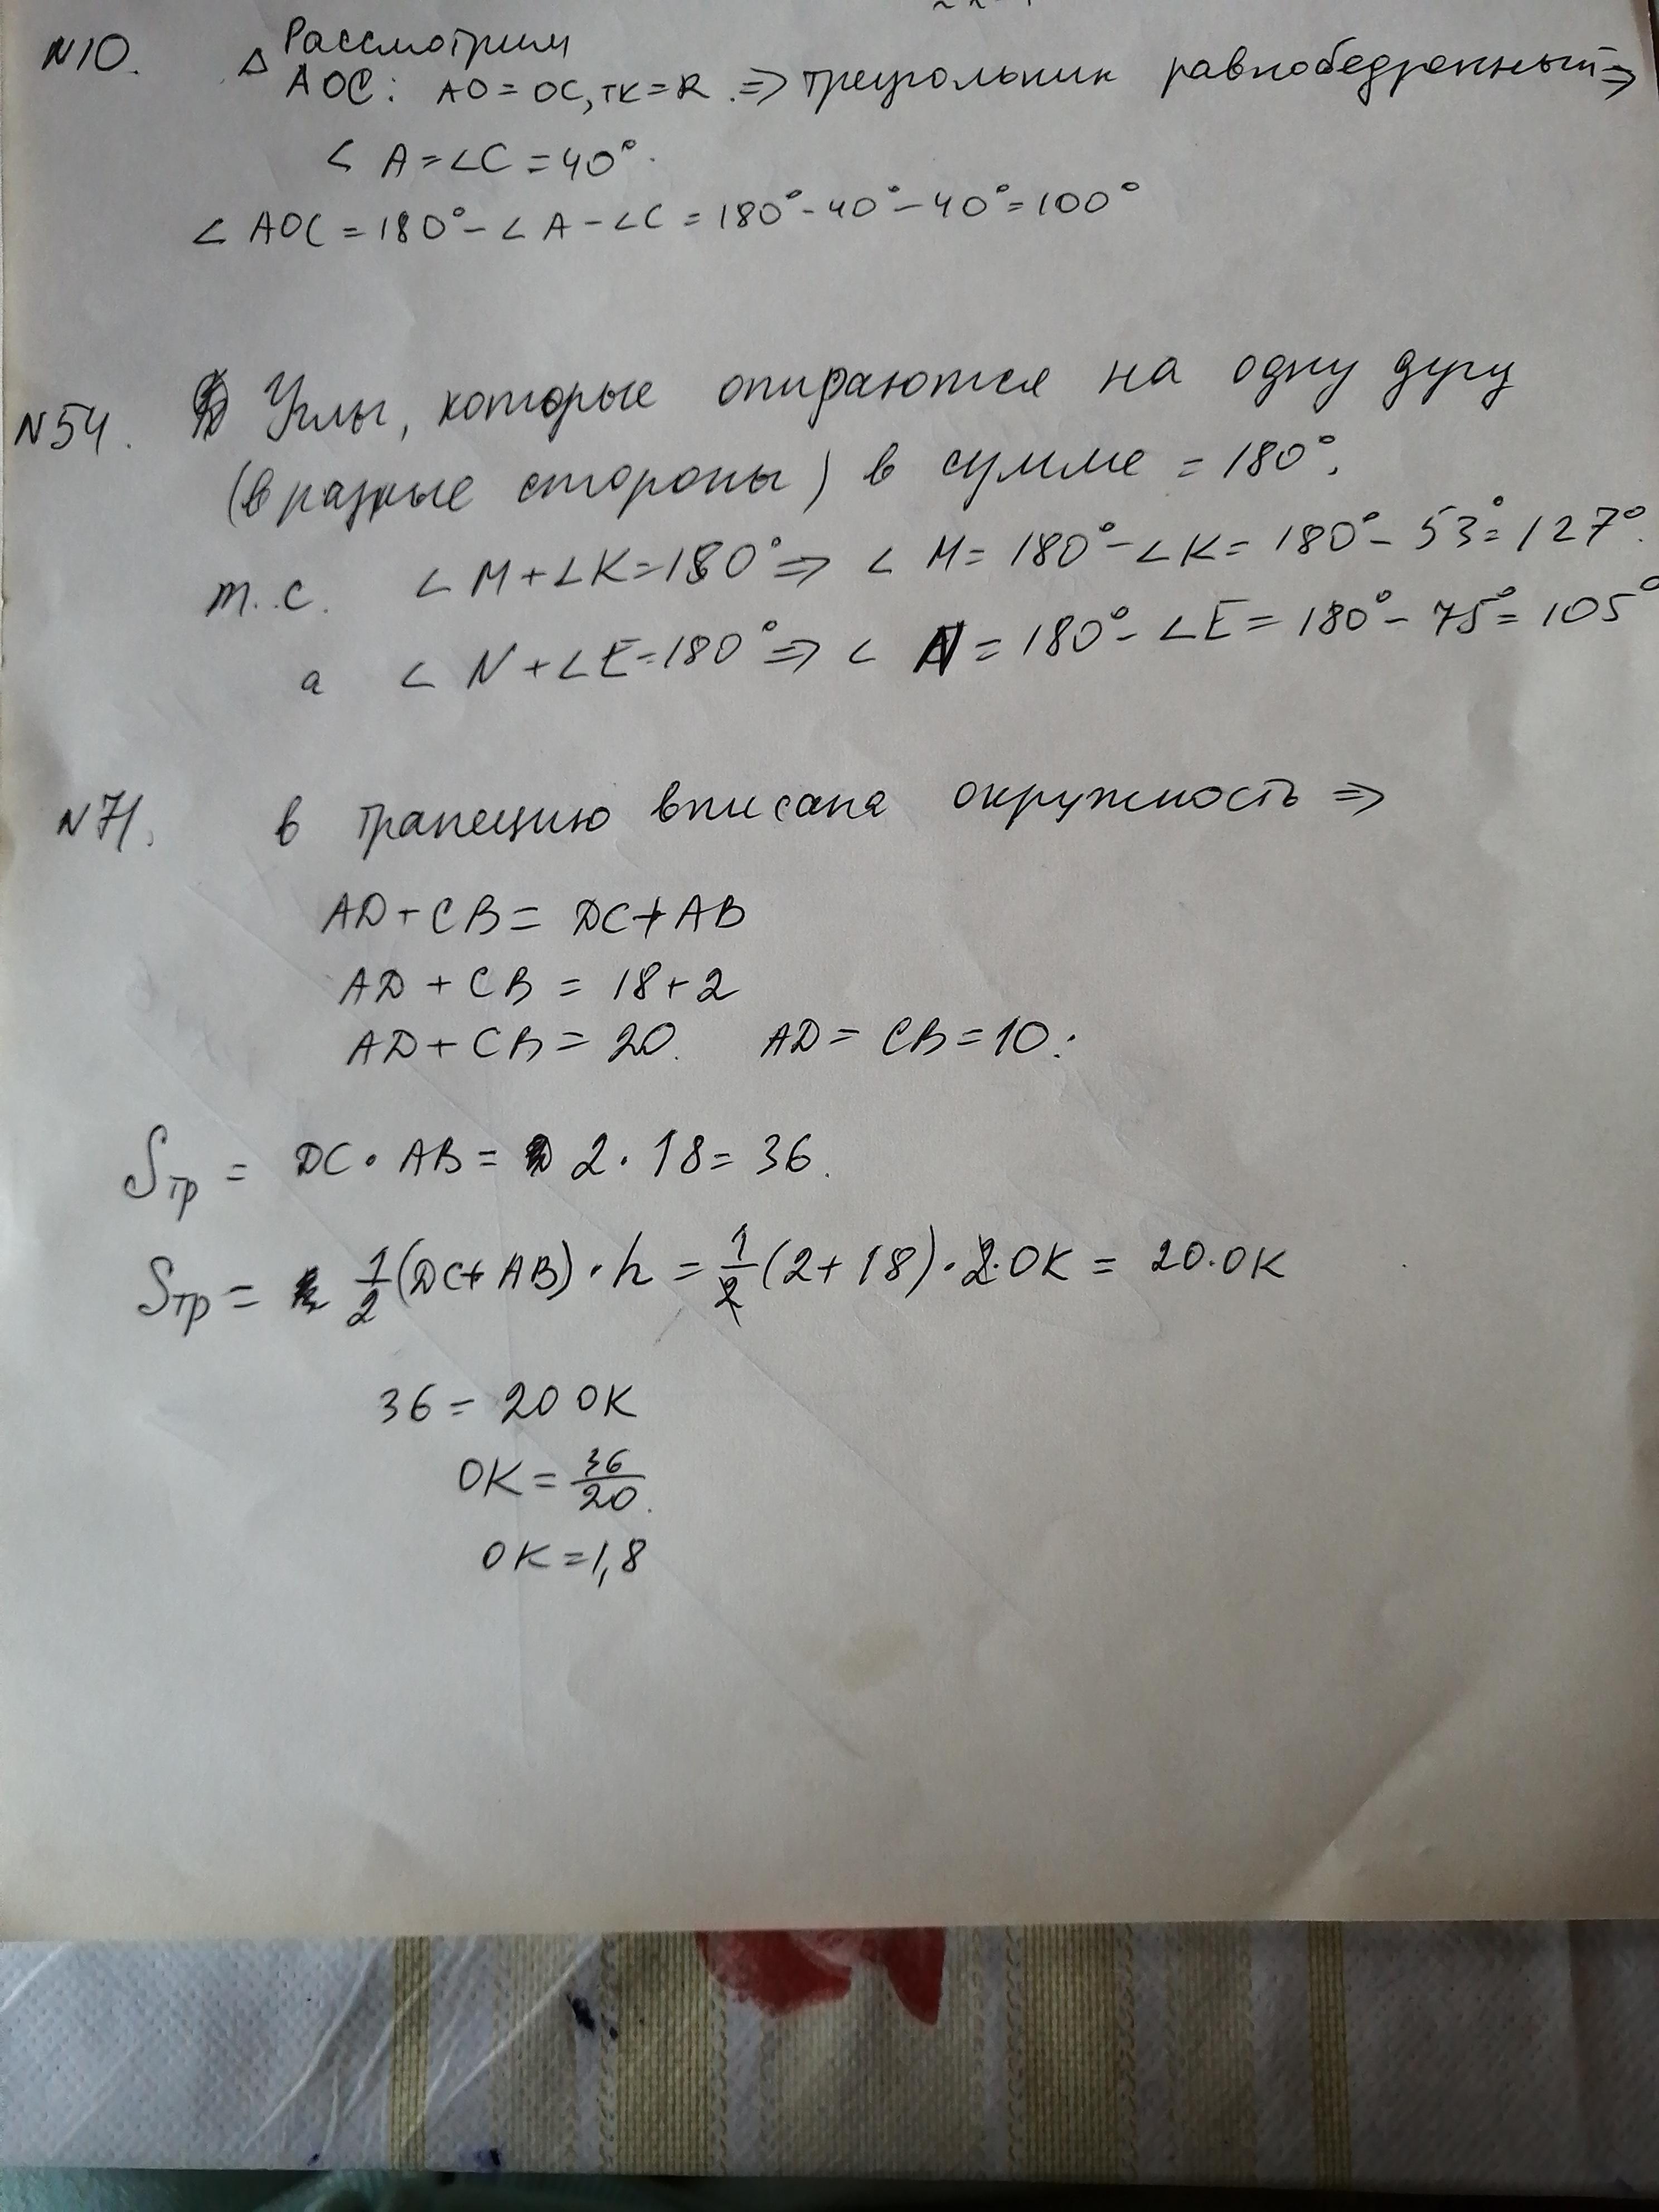 N10. Рассмотрим
Δ AOC: AO = OC, тк = R. ⇒ треугольник равнобедренный ⇒
∠ A = ∠C = 40°.
∠ AOC = 180° - ∠ A - ∠C = 180° - 40° - 40° = 100°
N54. Углы, которые опираются на одну дугу
(в разные стороны) в сумме = 180°.
т. е. ∠ M + ∠K = 180° ⇒ ∠ M = 180° - ∠K = 180° - 53° = 127°.
а ∠ N + ∠E = 180° ⇒ ∠ N = 180° - ∠E = 180° - 75° = 105°
N71. в трапецию вписана окружность ⇒
AD + CB = DC + AB
AD + CB = 18 + 2
AD + CB = 20. AD = CB = 10.
Sтр = DC · AB = 2 · 18 = 36.
Sтр = 1/2 (DC + AB) · h = 1/2 (2 + 18) · 2 · OK = 20 · OK
36 = 20 OK
OK = 36/20.
OK = 1,8